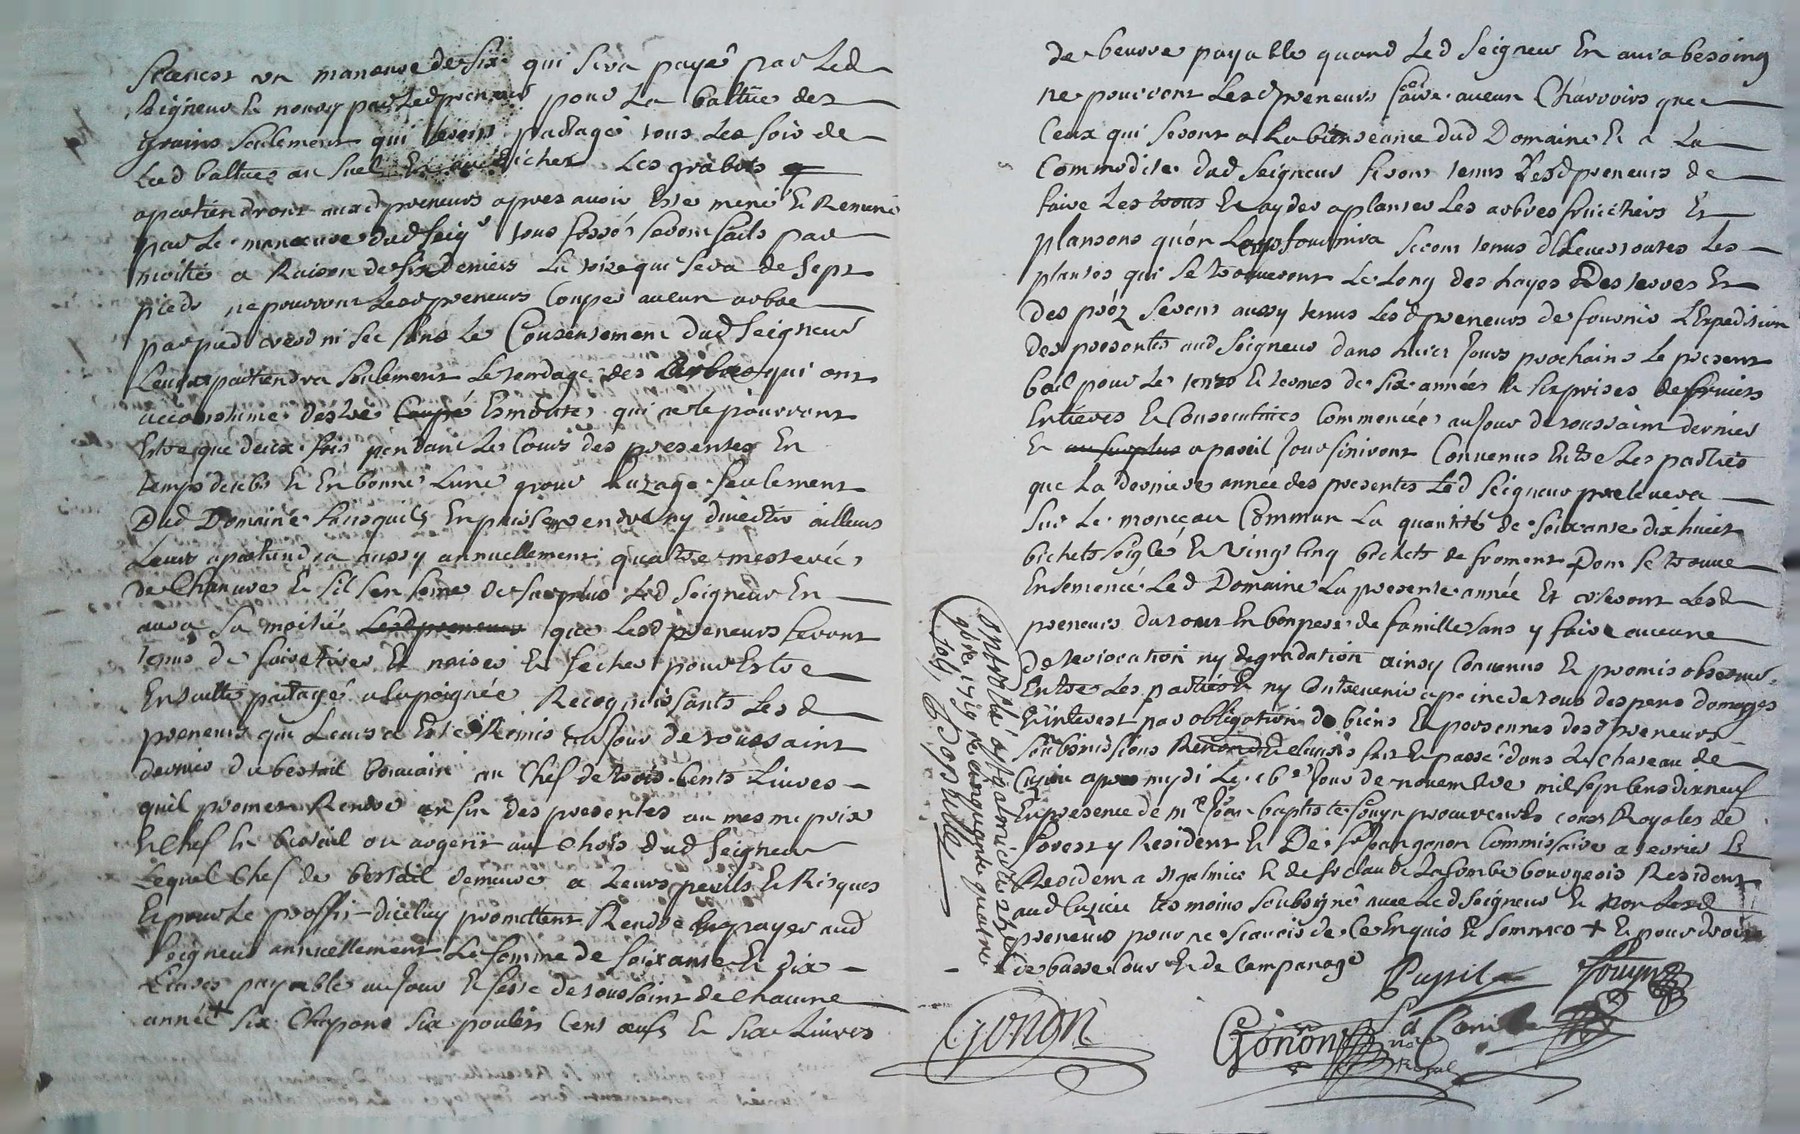 un maneuvre de six qui sera payé par led
Seigneur & noury par led preneurs pour la battue des
grains seulement qui seront partagé tous les soirs de
led battues au suel les grabots
apartiendront ausd preneurs apres avoir este mené & Remené
par le maneuvre dud seigr tous fossés seront faits par
moitié a Raison de six deniers la toize qui sera de sept
pieds ne pourront lesd preneurs couper aucun arbre
par pied verd ni sec sans le Consentement dud Seigneur
Leur apartiendra seulement le tondage des arbres qui ont
accoutumé destre Coupé Esmontés qui ne le pourront
Estre que deux fois pendant le Cours des presentes En
temps deub & En bonne Lune pour Luzage seulement
Dud Domaine sans quils En puissent vendre ny divertir ailleurs
Leurs apartiendra aussy annuellement quatre mesterées
de Chanvre & sil sen seme de surplus led Seigneur En
aura sa moitié Lesd preneurs que lesd preneurs seront
tenus de faire tirer & naiser & secher pour Estre
En suitte partagé a la poignée Recognoissants Lesd
preneurs que Leurs a Esté Remis au jour de toussaint
dernier du bestail boivain au Chef de trois Cents Livres
quil promet Rendre en fin des presentes au mesme prix
& chef & bestail ou argent au Chois dud Seigneur
Lequel chef de bestail demeure a leurs perils & Risques
Et pour le proffit diceluy promettent Rendre & payer aud
Seigneur annuellement la somme de soixante & dix
Livres payable au jour & feste de toussaint de Chacune
année six Chapons six poulets Cent œufs & six Livres
de beurre payable quand Led Seigneur En aura besoing
ne pourront Lesd preneurs faire aucun Charrois que
Ceux qui seront a La bienseance dud Domaine & a La
Commodité dud Seigneur seront tenus Lesd preneurs de
faire Les trous & ayder a planter Les arbres fruictiers Et
plansons qu'on Leurs fournira seront tenus d'Elever toutes les
plantes qui se trouveront Le Long des hayes Des terres Et
Des préz seront aussy tenus Lesd preneurs de fournir L'Expedition
Des presentes aud Seigneur dans huict Jours prochains le present
bail pour Le temps & termes de six années & six prises de fruicts
Entieres & Consecutives Commencées au Jour de toussaint dernier
Et au surplus a pareil Jour finiront Convenus Entre Les parties
que La derniere année des presentes Led Seigneur prelevera
Sur Le monceau Commun La quantité de soixante dix huict
bichets soigle & vingt Cinq bichets de froment Dont se trouve
Ensemencé Led Domaine La presente année Et useront Lesd
preneurs du tout En bon pere de famille sans y faire aucune
Deterioration ny degradation ainsy Convenus & promis observer
Entre Les parties & ny Contrevenir a peine de tous despens domages
& interest par obligation de biens & personnes desd preneurs
Soubmissions Renond & clauses fait & passé dans Le Chateau de
Cuzieu apres mydi Le 16e Jour de novembre mil sept Cens dix neuf
En presence de Me Jean baptiste Souyn procureur Es cours Royales de
Forest y Resident & De Sr Jean gonon Commissaire a terrier &
Resident a st galmier & de Sr claude Lacombe bourgeois Resident
aud Cuzieu tesmoins Soubsigné avec Led Seigneur & non Lesd
preneurs pour ne scavoir de Ce Enquis & Sommés + & pour droit
de basse Cour & de Campanage
Controllé a st galmier le 27e
9bre 1719 Re cinquante quatre
Sols
Pupil
Souyn
Gonon
Gonon
Royal